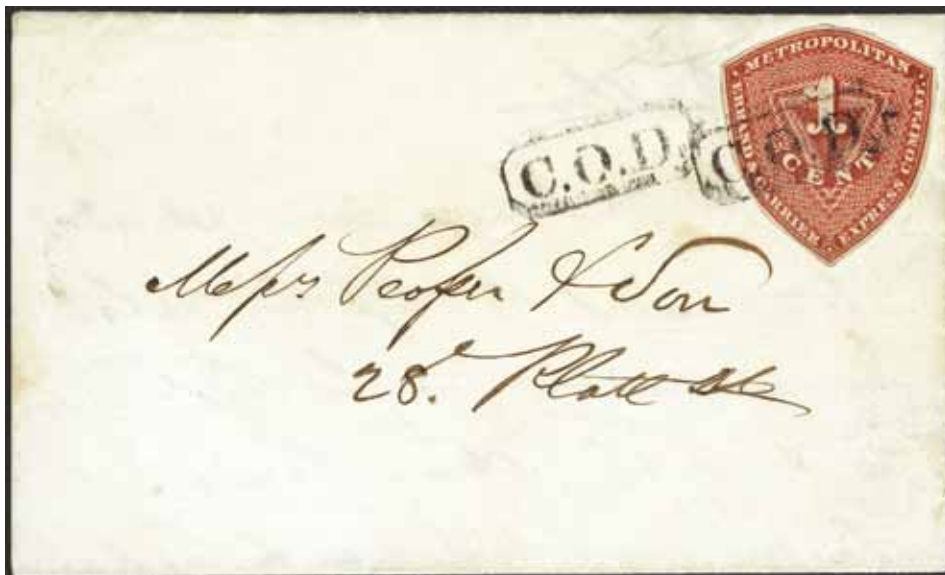 METROPOLITAN
ERRAND & CARRIER EXPRESS COMPANY.
1
CENT
C.O.D. C.O.D.
Messrs & Son
28. Platt St